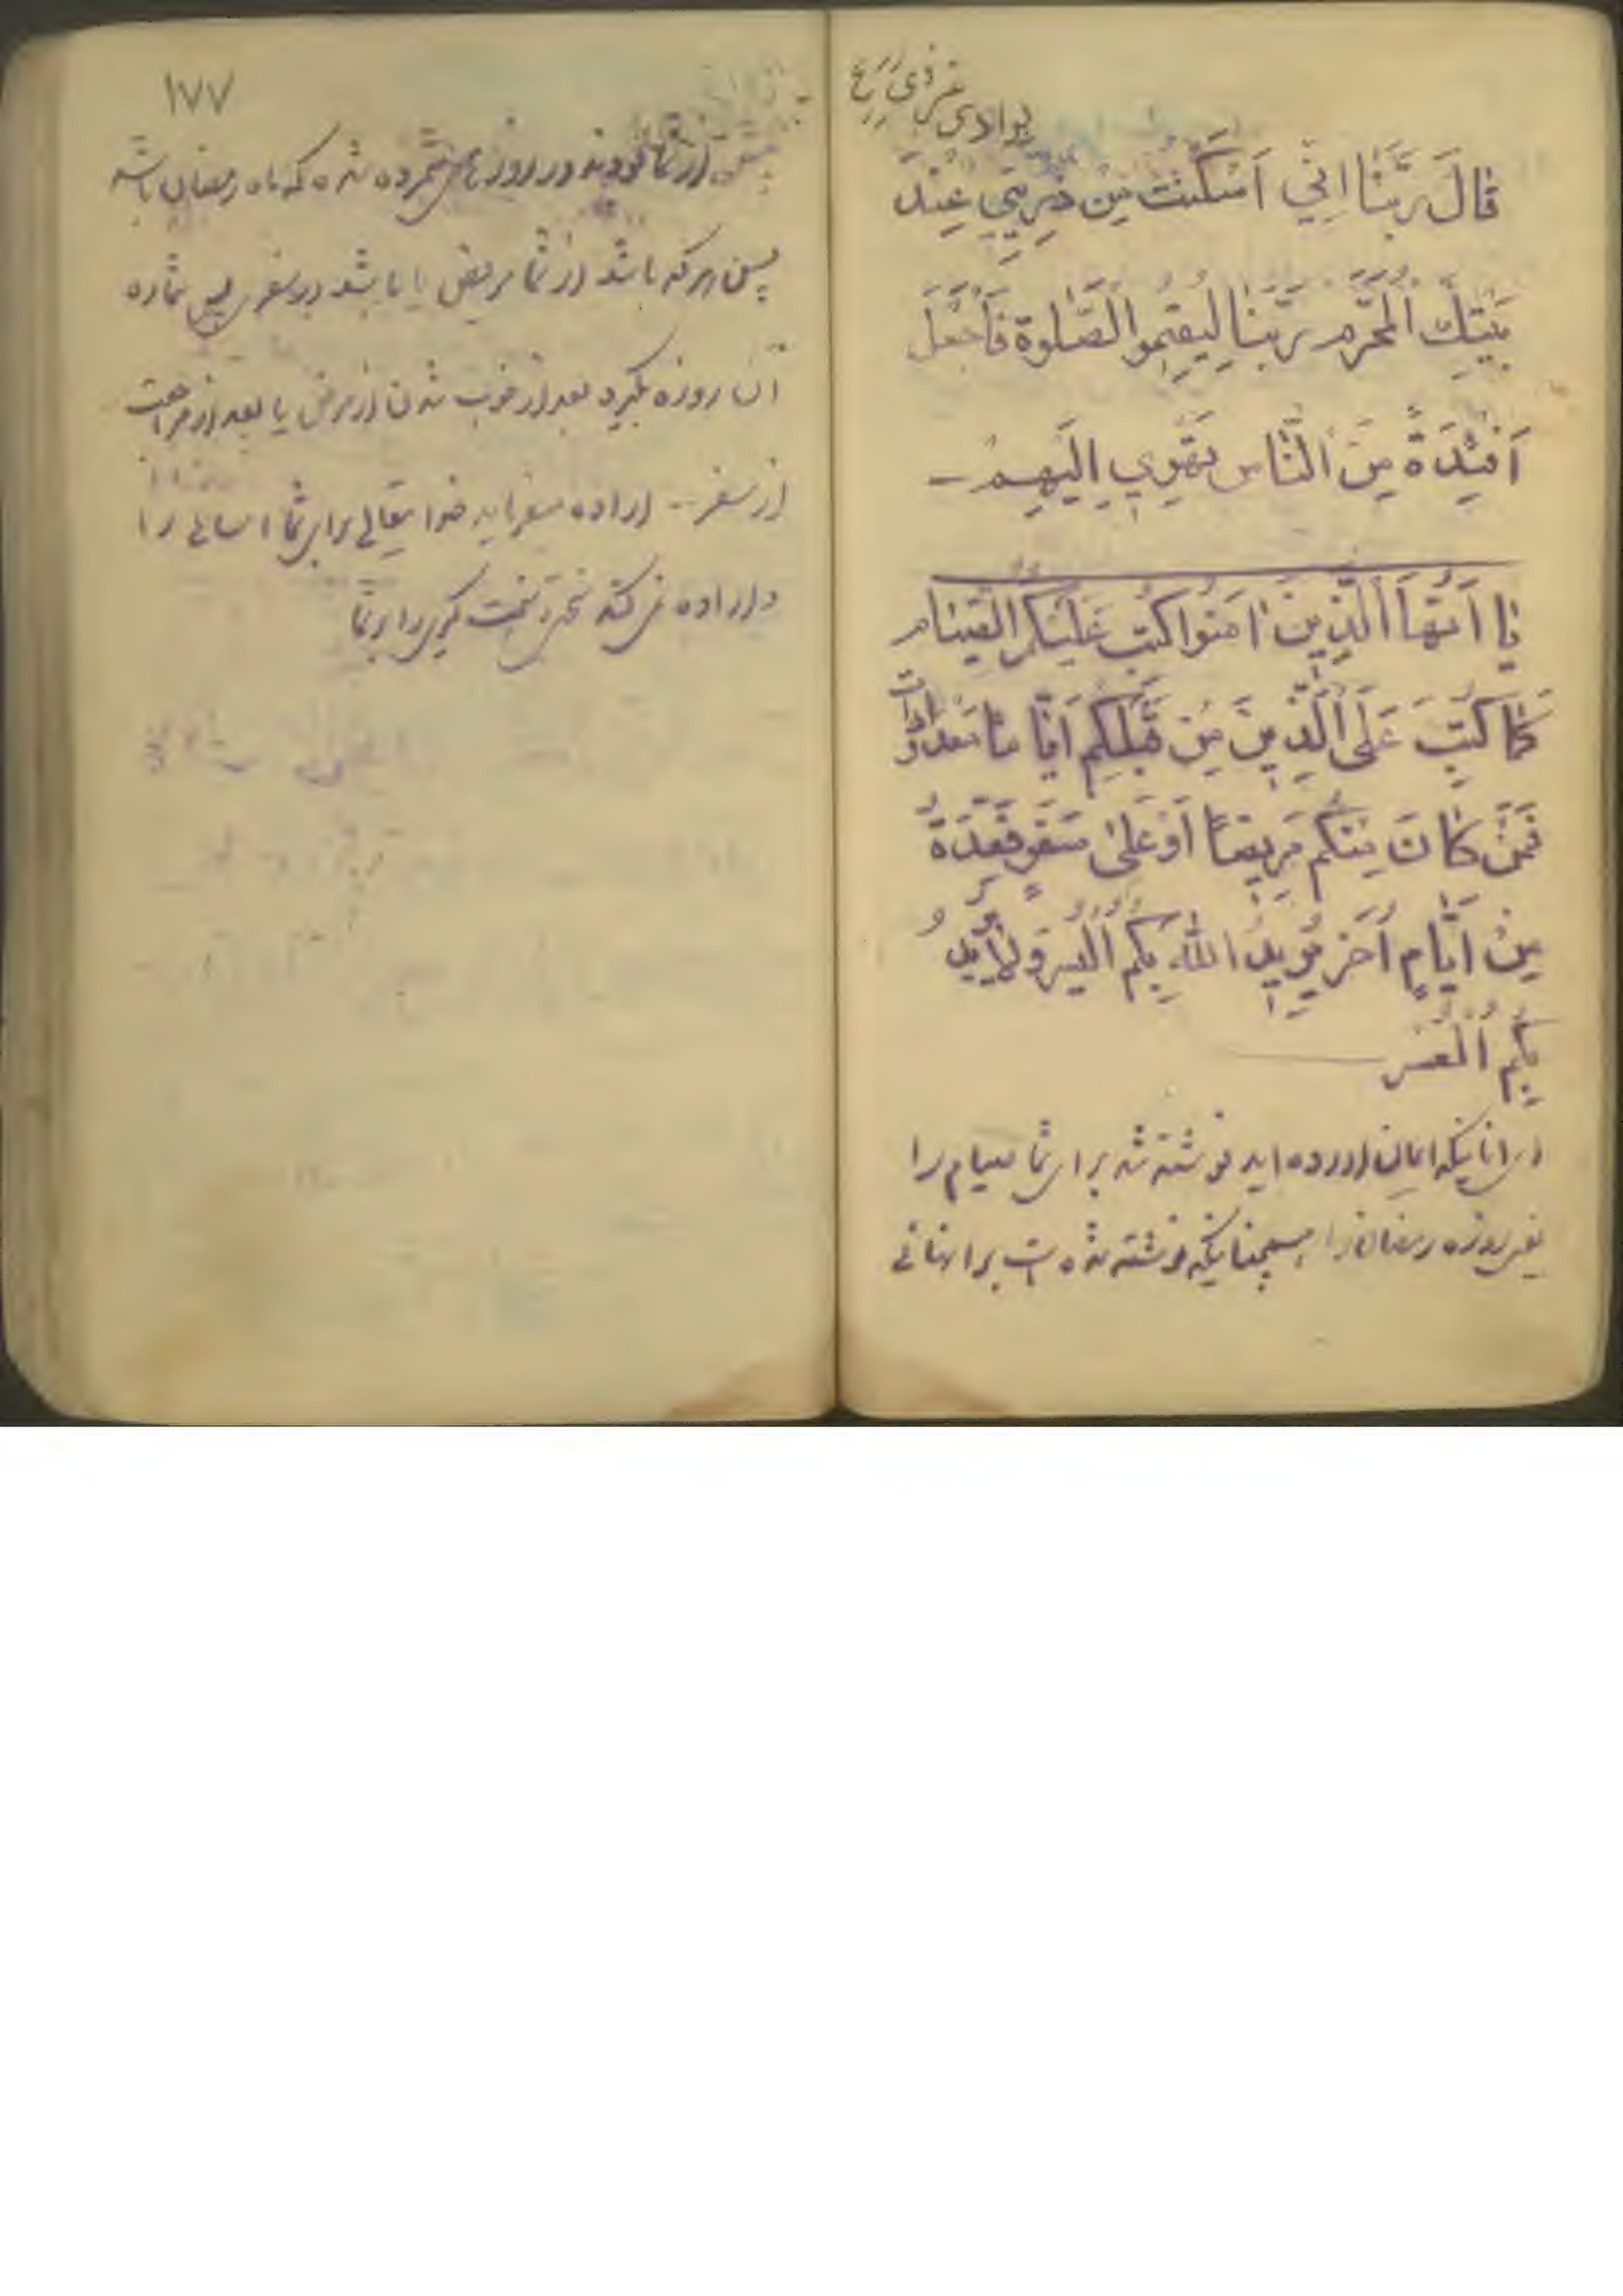 بوادی غیر ذی زرع
قالَ رَبَّنا اِنّي اَسْكَنْتُ مِن ذُرِيَّتي عِنْدَ
بَيْتِكَ الْمُحَرَّمِ رَبَّنا لِيُقيمُوا الصَّلوةَ فَاجْعَلْ
اَفْئِدَةً مِنَ النّاسِ تَهْوِي اِلَيْهِمْ
يا اَيُّهَا الَّذينَ امَنوا كُتِبَ عَلَيْكُمُ الصِّيام
كَما كُتِبَ عَلَى الَّذينَ مِن قَبْلِكُم اَيّاماً مَعدوداتٍ
فَمَنْ كانَ مِنكُم مَريضاً اَو عَلى سَفَرٍ فَعِدَةٌ
مِنْ اَيّامٍ اُخَر يُريدُ اللهُ بِكُمُ الْيُسرَ وَلا يُريدُ
بِكُم الْعُسر
ای انانیکه ایمان اورده اید نوشته شد برای شما صیام را
یعنی روزه رمضان را همچنانیکه نوشته شده است بر انهائی
۱۷۷
پیش از شما بودند در روزهای شمرده شده که ماه رمضان باشد
پس هرکه باشد از شما مریض یا باشد در سفری پس شماره
آن روزه بگیرد بعد از خوب شدن از مرض یا بعد از مراجعت
از سفر ـ اراده میفرماید خدایتعالی برای شما اسانی را
و اراده نمی کند سختی و سخت گیری را بر شما